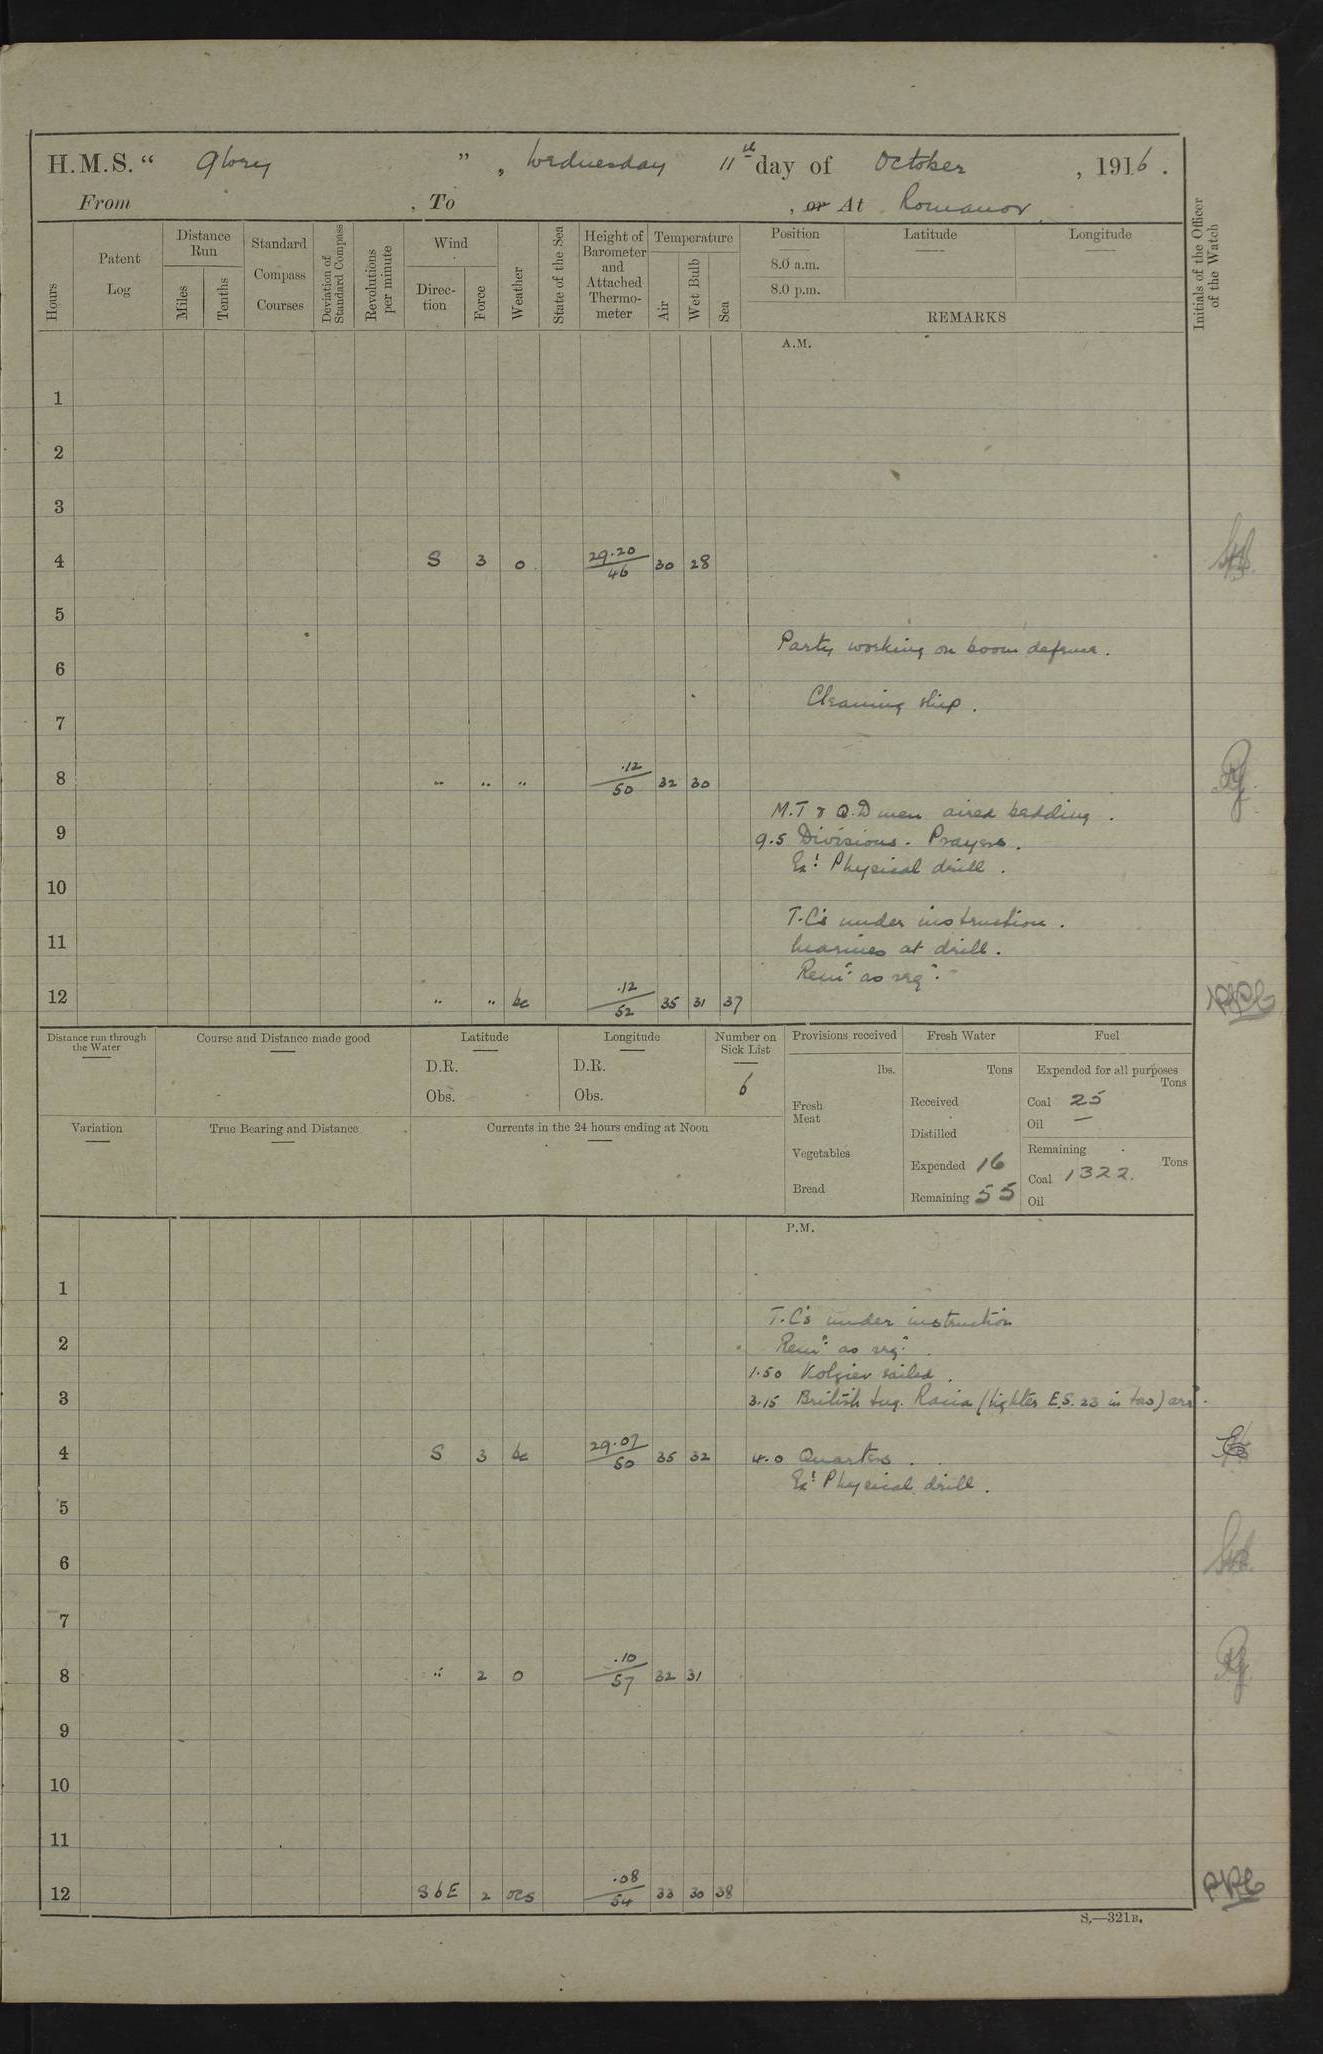 H.M.S. “ Glory ” , Wednesday 11th day of October , 1916 .
From , To , or At Romanov
Hours
Patent Log
Distance Run
Miles
Tenths
Standard Compass Courses
Deviation of Standard Compass
Revolutions per minute
Wind
Direc-tion
Force
Weather
State of the Sea
Height of Barometer and Attached Thermo-meter
Temperature
Air
Wet Bulb
Sea
Position
8.0 a.m.
8.0 p.m.
Latitude
Longitude
REMARKS
Initials of the Officer of the Watch
A.M.
1
2
3
4 S 3 o 29.20/46 30 28
5
Party working on boom defence.
6
Cleaning ship.
7
8 " " " .12/50 32 30
M.T & Q.D men aired bedding.
9
9.5 Divisions. Prayers.
Ex! Physical drill.
10
T.C's under instruction.
11
Marines at drill.
Rem: as req:
12 " " bc .12/52 35 31 37
Distance run through the Water
Course and Distance made good
Latitude
D.R.
Obs.
Longitude
D.R.
Obs.
Number on Sick List
6
Provisions received
lbs.
Fresh Meat
Vegetables
Bread
Fresh Water
Tons
Received
Distilled
Expended 16
Remaining 55
Fuel
Expended for all purposes
Tons
Coal 25
Oil —
Remaining
Tons
Coal 1322.
Oil
Variation
True Bearing and Distance
Currents in the 24 hours ending at Noon
P.M.
1
T.C's under instruction
2
Rem: as req:
1.50 Kolguev sailed.
3
3.15 British tug. Racia (lighter E.S. 23 in tow) arr:
4 S 3 bc 29.07/50 35 32 4.0 Quarters.
Ex! Physical drill.
5
6
7
8 " 2 o .10/57 32 31
9
10
11
12 SbE 2 ocs .08/54 33 30 38
S.—321B.